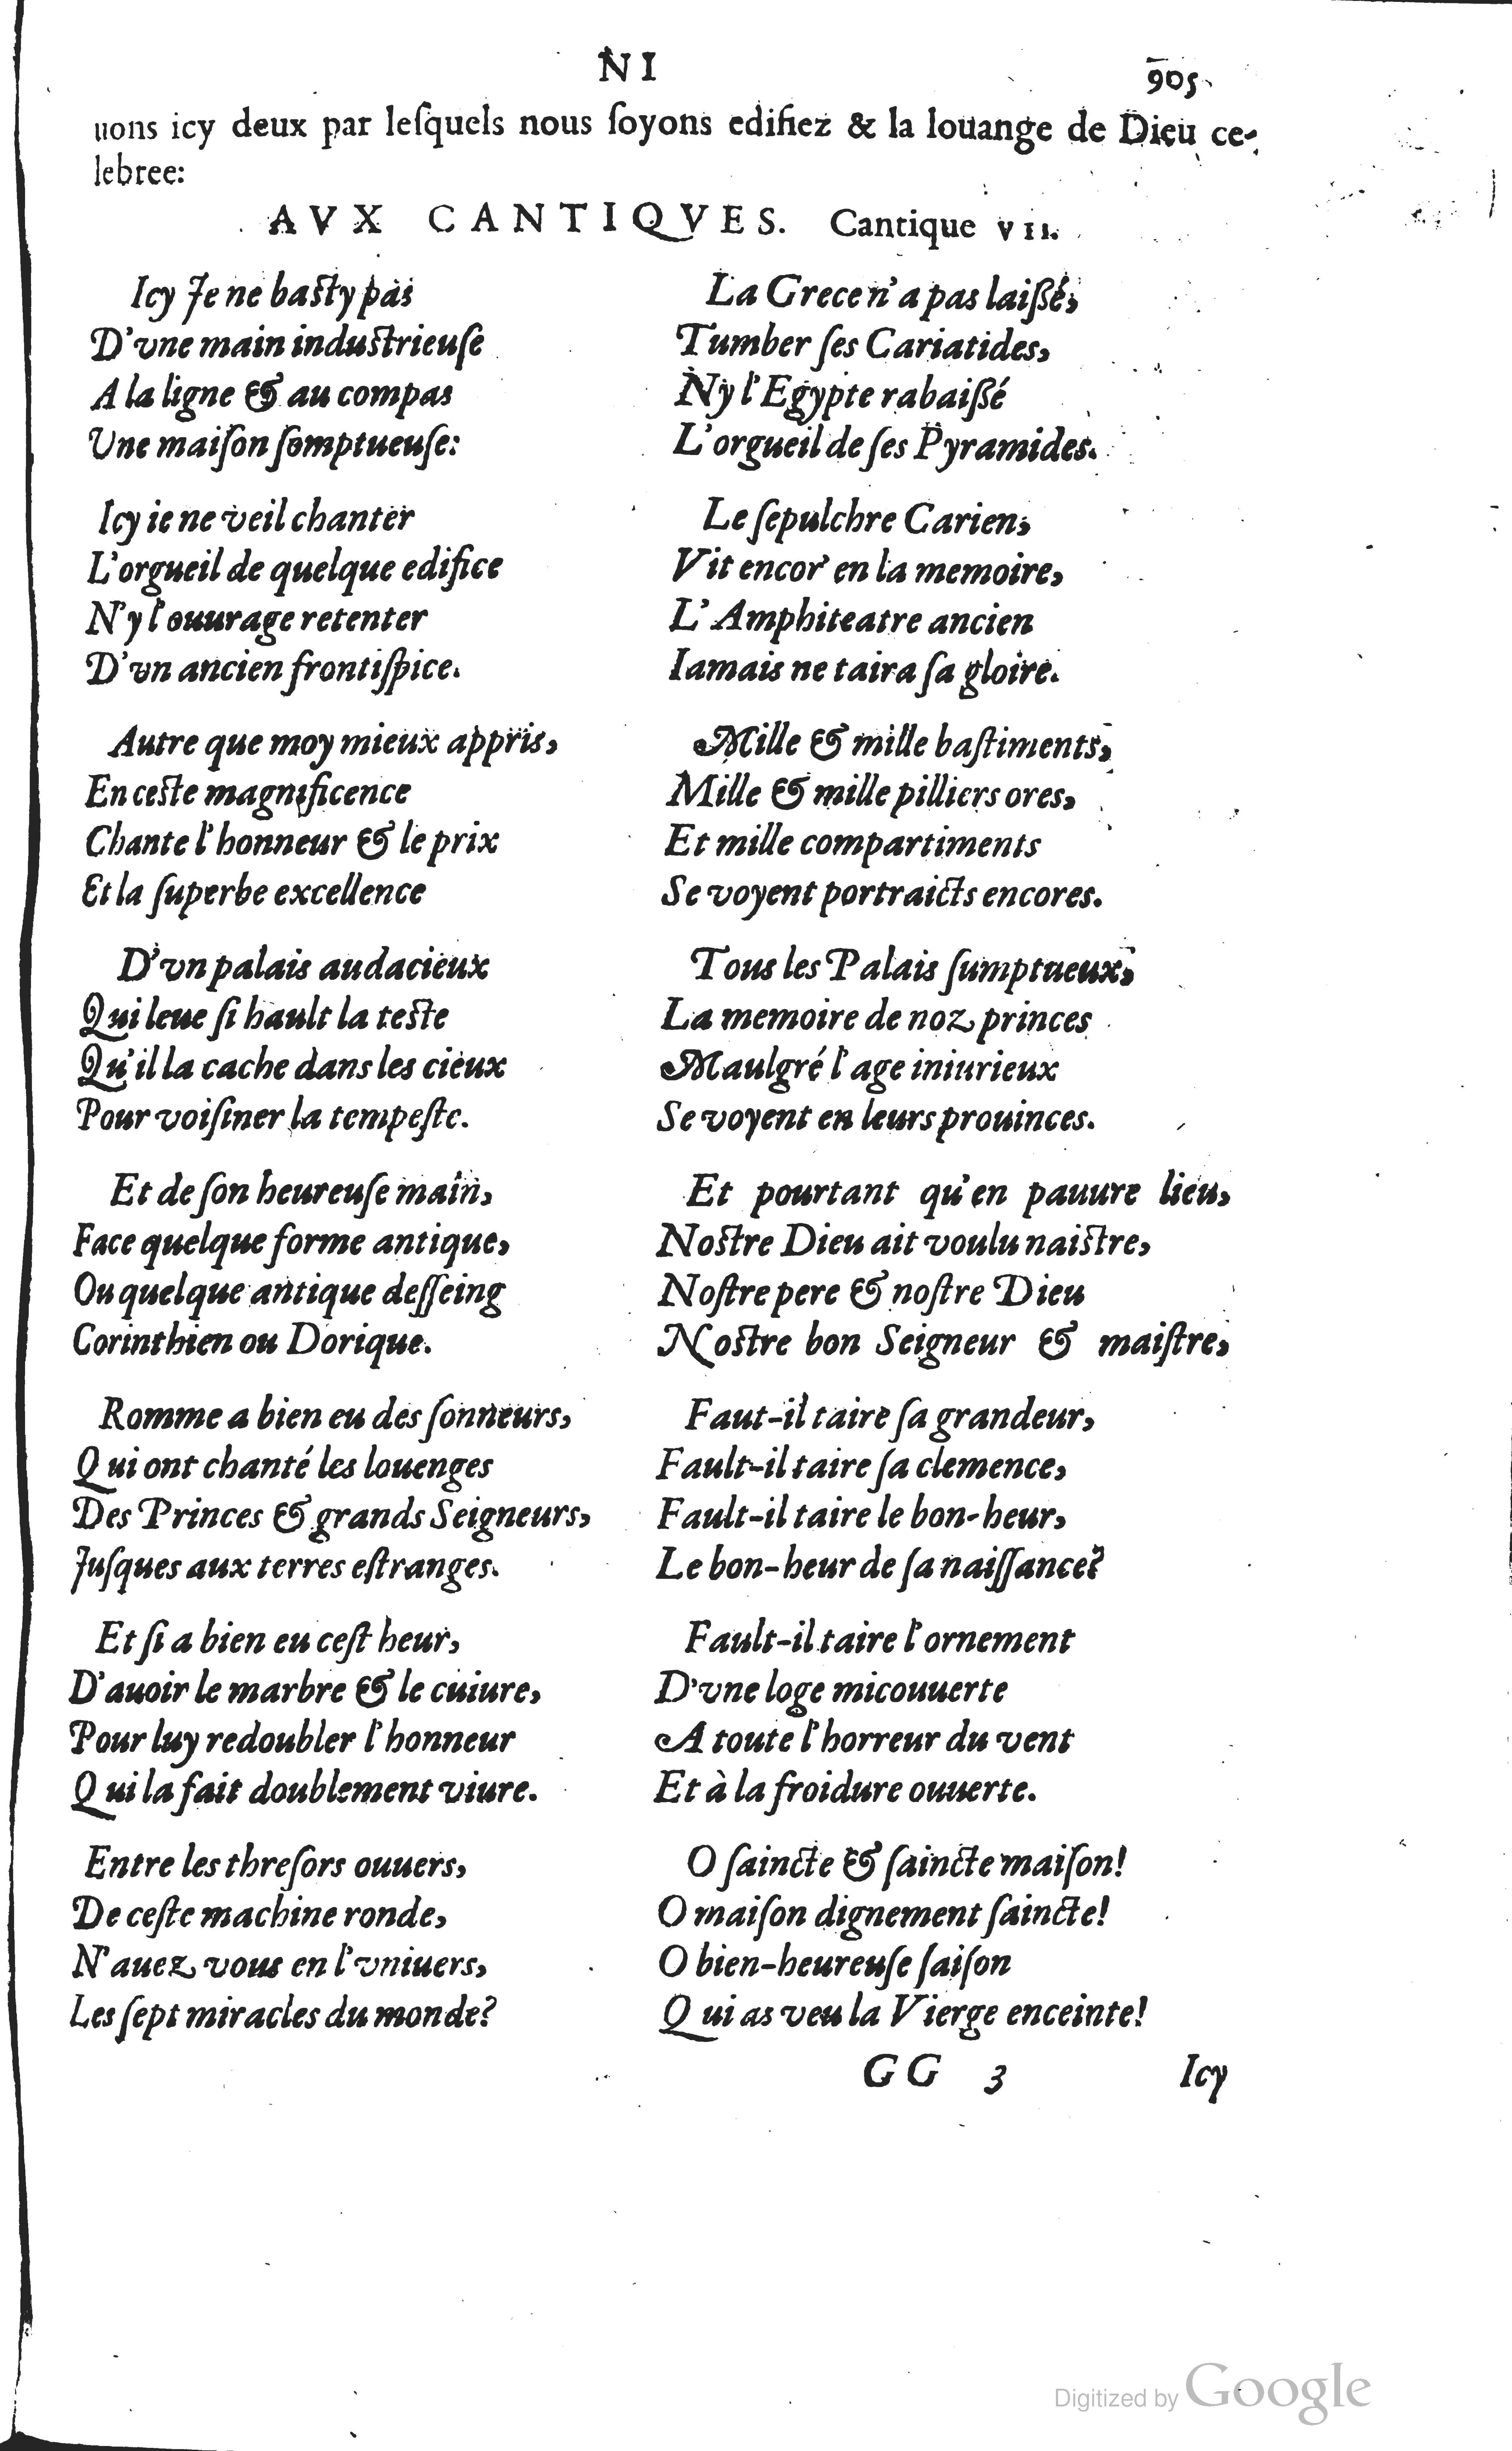 NI
905
uons icy deux par leſquels nous ſoyons edifiez & la louange de Dieu ce-
lebree:
AVX CANTIQVES. Cantique VII.
Icy Je ne baſty pas
D'vne main induſtrieuſe
A la ligne & au compas
Une maiſon ſomptueuſe:
Icy ie ne veil chanter
L'orgueil de quelque edifice
N'y l'ouurage retenter
D'vn ancien frontiſpice.
Autre que moy mieux appris,
En ceſte magnificence
Chante l'honneur & le prix
Et la ſuperbe excellence
D'vn palais audacieux
Qui leue ſi hault la teſte
Qu'il la cache dans les cieux
Pour voiſiner la tempeſte.
Et de ſon heureuſe main,
Face quelque forme antique,
Ou quelque antique deſſeing
Corinthien ou Dorique.
Romme a bien eu des ſonneurs,
Qui ont chanté les louenges
Des Princes & grands Seigneurs,
Juſques aux terres eſtranges.
Et ſi a bien eu ceſt heur,
D'auoir le marbre & le cuiure,
Pour luy redoubler l'honneur
Qui la fait doublement viure.
Entre les threſors ouuers,
De ceſte machine ronde,
N'auez vous en l'vniuers,
Les ſept miracles du monde?
La Grece n'a pas laiſſé,
Tumber ſes Cariatides,
Ny l'Egypte rabaiſſé
L'orgueil de ſes Pyramides.
Le ſepulchre Carien,
Vit encor' en la memoire,
L'Amphiteatre ancien
Iamais ne taira ſa gloire.
Mille & mille baſtiments,
Mille & mille pilliers ores,
Et mille compartiments
Se voyent portraicts encores.
Tous les Palais ſumptueux,
La memoire de noz princes
Maulgré l'age iniurieux
Se voyent en leurs prouinces.
Et pourtant qu'en pauure lieu,
Noſtre Dieu ait voulu naiſtre,
Noſtre pere & noſtre Dieu
Noſtre bon Seigneur & maiſtre,
Faut-il taire ſa grandeur,
Fault-il taire ſa clemence,
Fault-il taire le bon-heur,
Le bon-heur de ſa naiſſance?
Fault-il taire l'ornement
D'vne loge micouuerte
A toute l'horreur du vent
Et à la froidure ouuerte.
O ſaincte & ſaincte maiſon!
O maiſon dignement ſaincte!
O bien-heureuſe ſaiſon
Qui as veu la Vierge enceinte!
GG 3
Icy
Digitized by Google